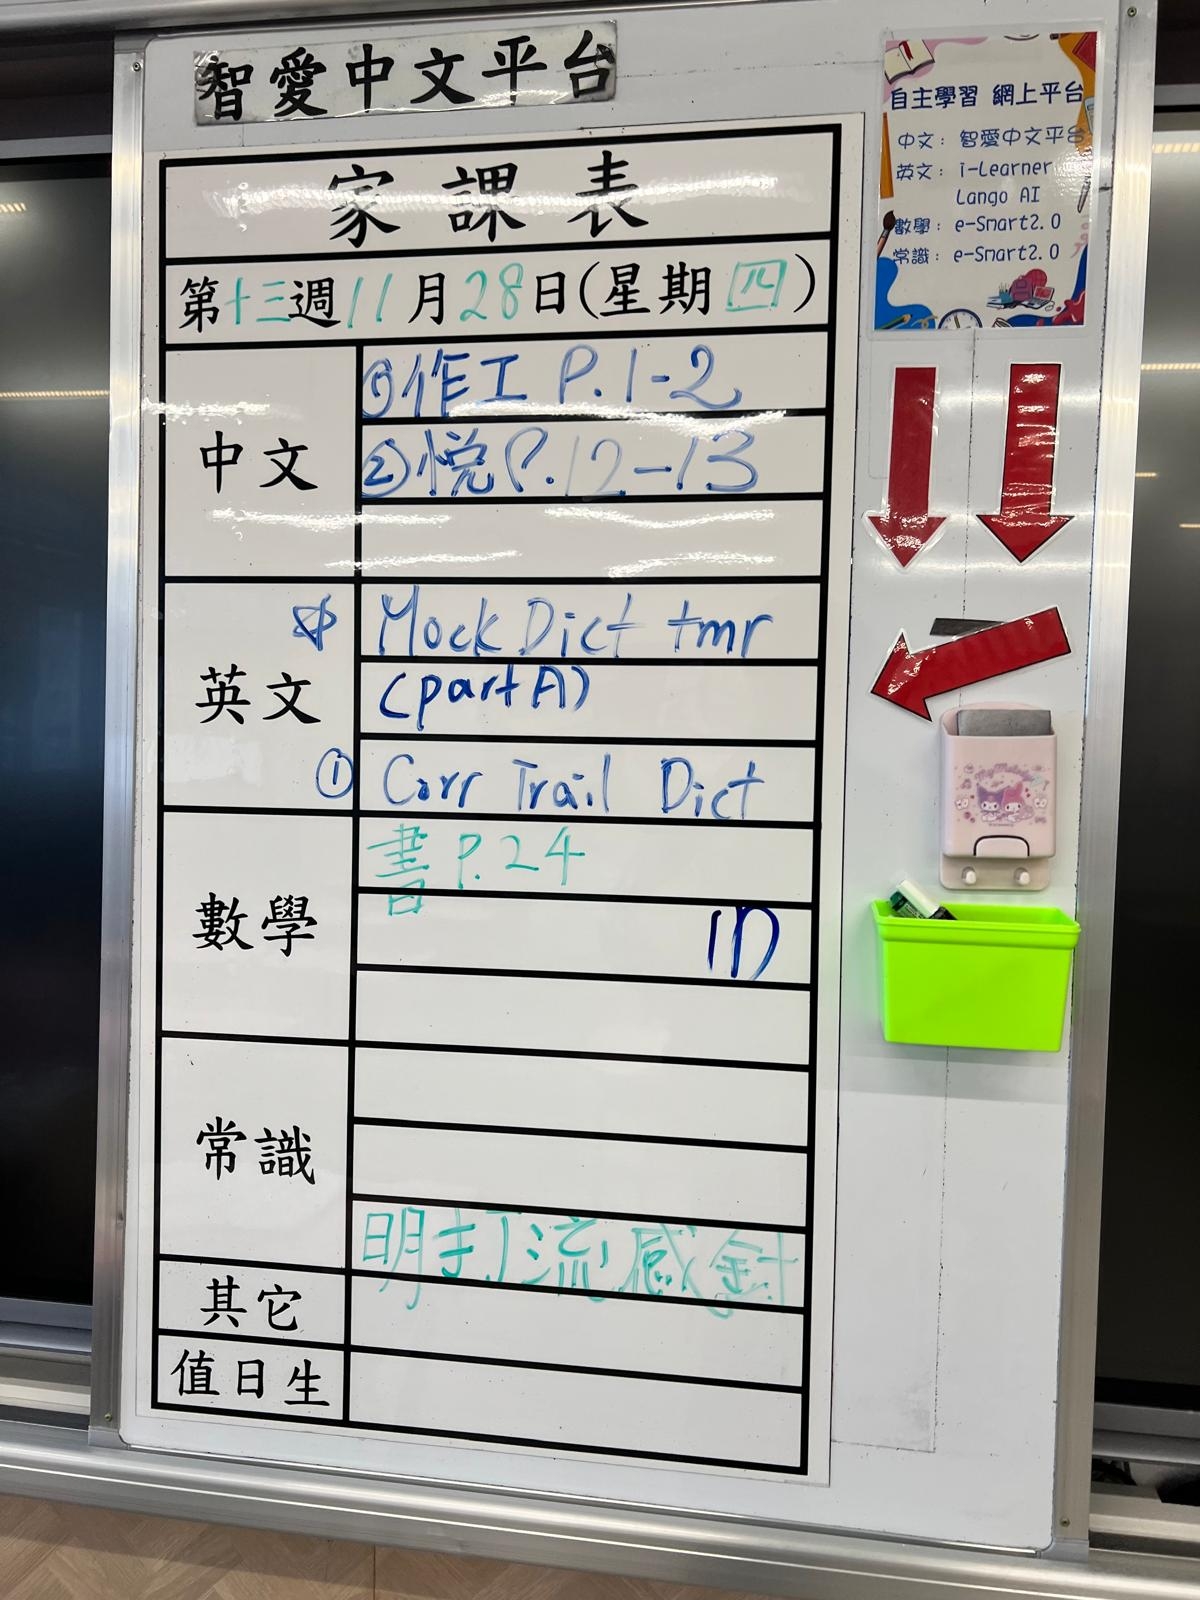 智愛中文平台
家課表
第十三週11月28日(星期四)
中文
①作工 P.1-2
②悦P.12-13
英文
☆ Mock Dict tmr
(part A)
① Corr Trail Dict
數學
書 P.24
1D
常識
明打流感針
其它
值日生
自主學習 網上平台
中文：智愛中文平台
英文：i-Learner
Lango AI
數學：e-Smart2.0
常識：e-Smart2.0
My Melody